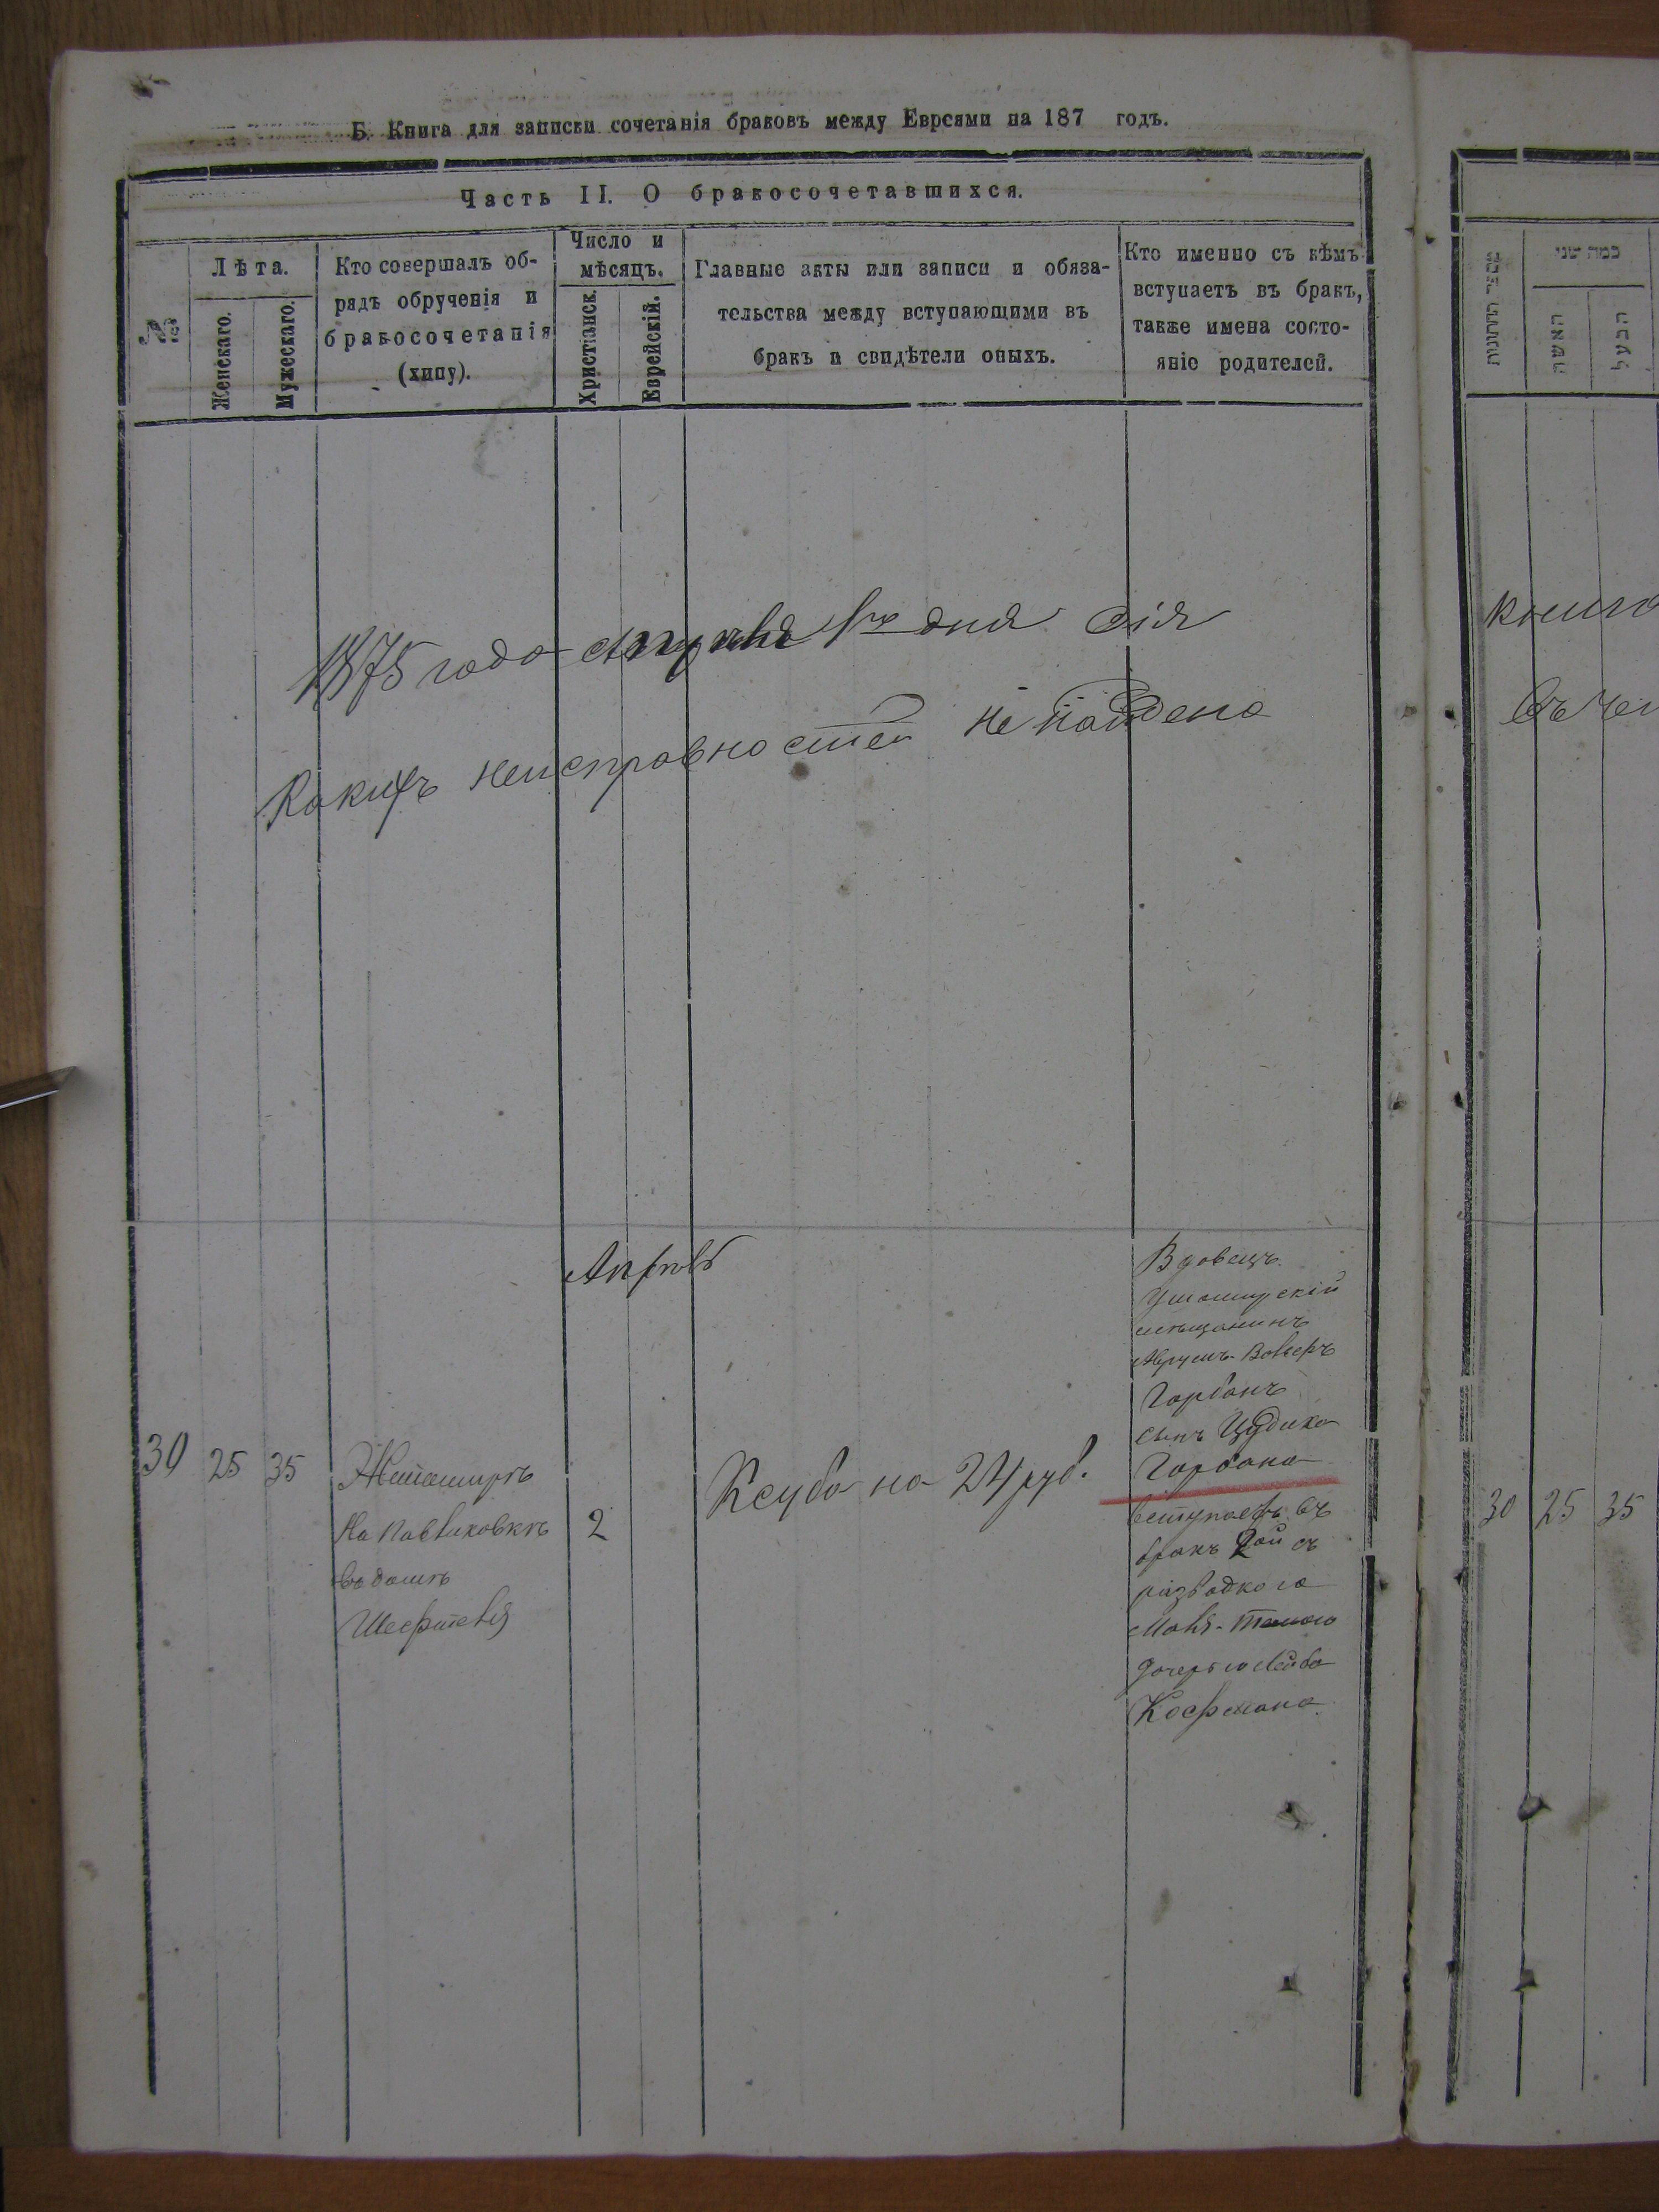 Б. Книга для записки сочетанія браковъ между Евреями на 187 годъ.
Часть II. О бракосочетавшихся.
№
Лѣта.
Женскаго.
Мужескаго.
Кто совершалъ об-
рядъ обрученія и
бракосочетанія
(хипу).
Число и
мѣсяцъ.
Христіанск.
Еврейскій.
Главные акты или записи и обяза-
тельства между вступающими въ
бракъ и свидѣтели оныхъ.
Кто именно съ кѣмъ
вступаетъ въ бракъ,
также имена состо-
яніе родителей.
1875 года Апрѣля 1го дня сія
Какихъ неисправностей не найдено
Апрѣль
30 25 35
Житомирѣ
На Павликовкѣ
въ домѣ
2
Ксуба на 24 руб.
Вдовецъ
Ушомирскій
мѣщанинъ
Аврумъ-Вольфъ
Горбанъ
сынъ Цудика
Горбана
вступаетъ въ
бракъ 2ой съ
разводкою
дочерью Лейба
Кофмана
כמה שני
האשה
הבעל
книга
въ чем
30 25 35